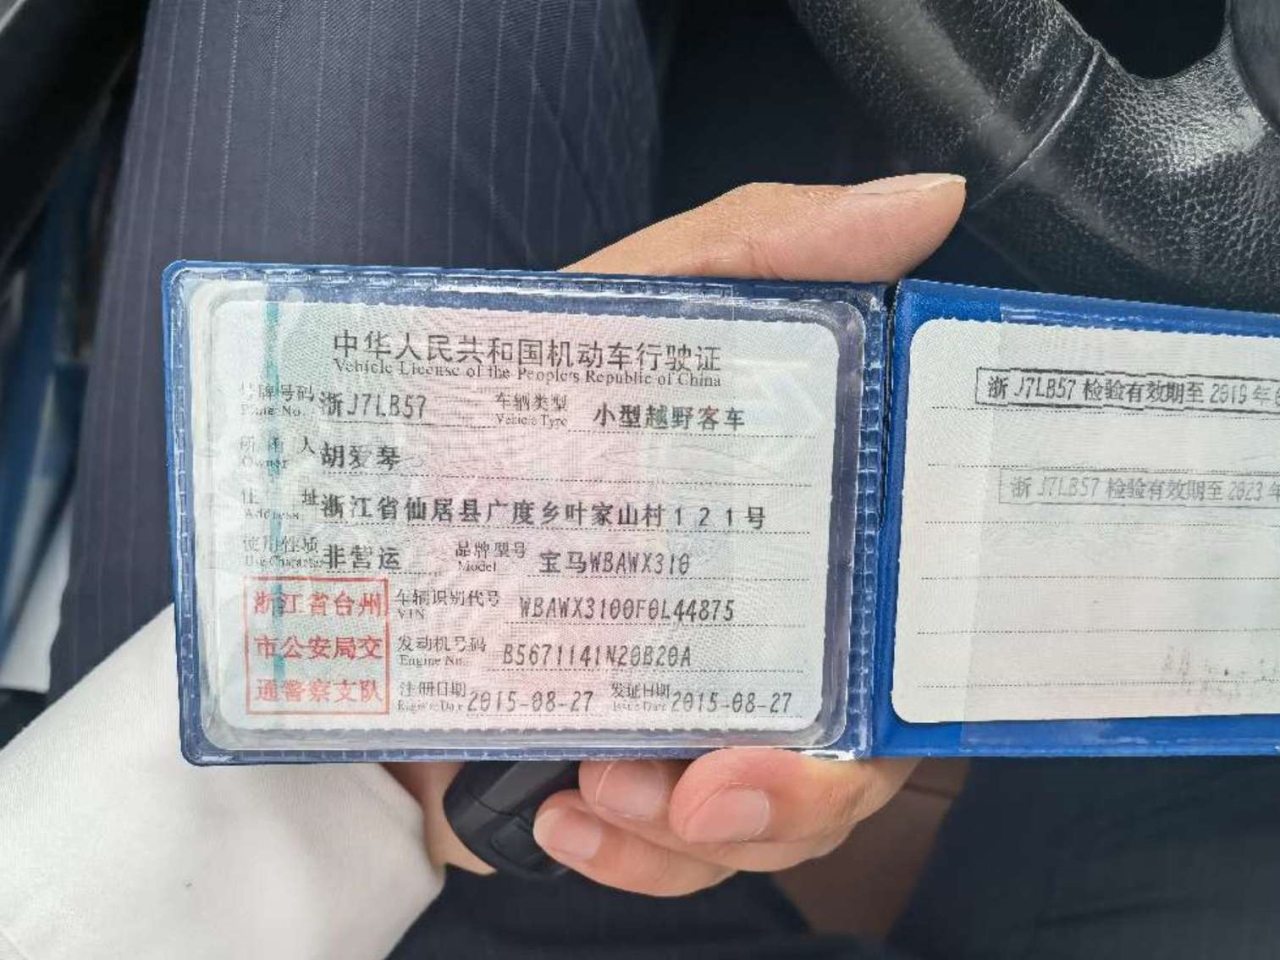 中华人民共和国机动车行驶证
Vehicle License of the People's Republic of China
号牌号码 浙J7LB57 车辆类型 小型越野客车
Plate No. Vehicle Type
所有人 胡爱琴
Owner
住址 浙江省仙居县广度乡叶家山村121号
Address
使用性质 非营运 品牌型号 宝马WBAWX310
Use Character Model
浙江省台州
市公安局交
通警察支队
车辆识别代号 WBAWX3100F0L44875
VIN
发动机号码 B5671141N20B20A
Engine No.
注册日期 2015-08-27 发证日期 2015-08-27
Register Date Issue Date
浙J7LB57 检验有效期至 2019年
浙J7LB57 检验有效期至 2023年